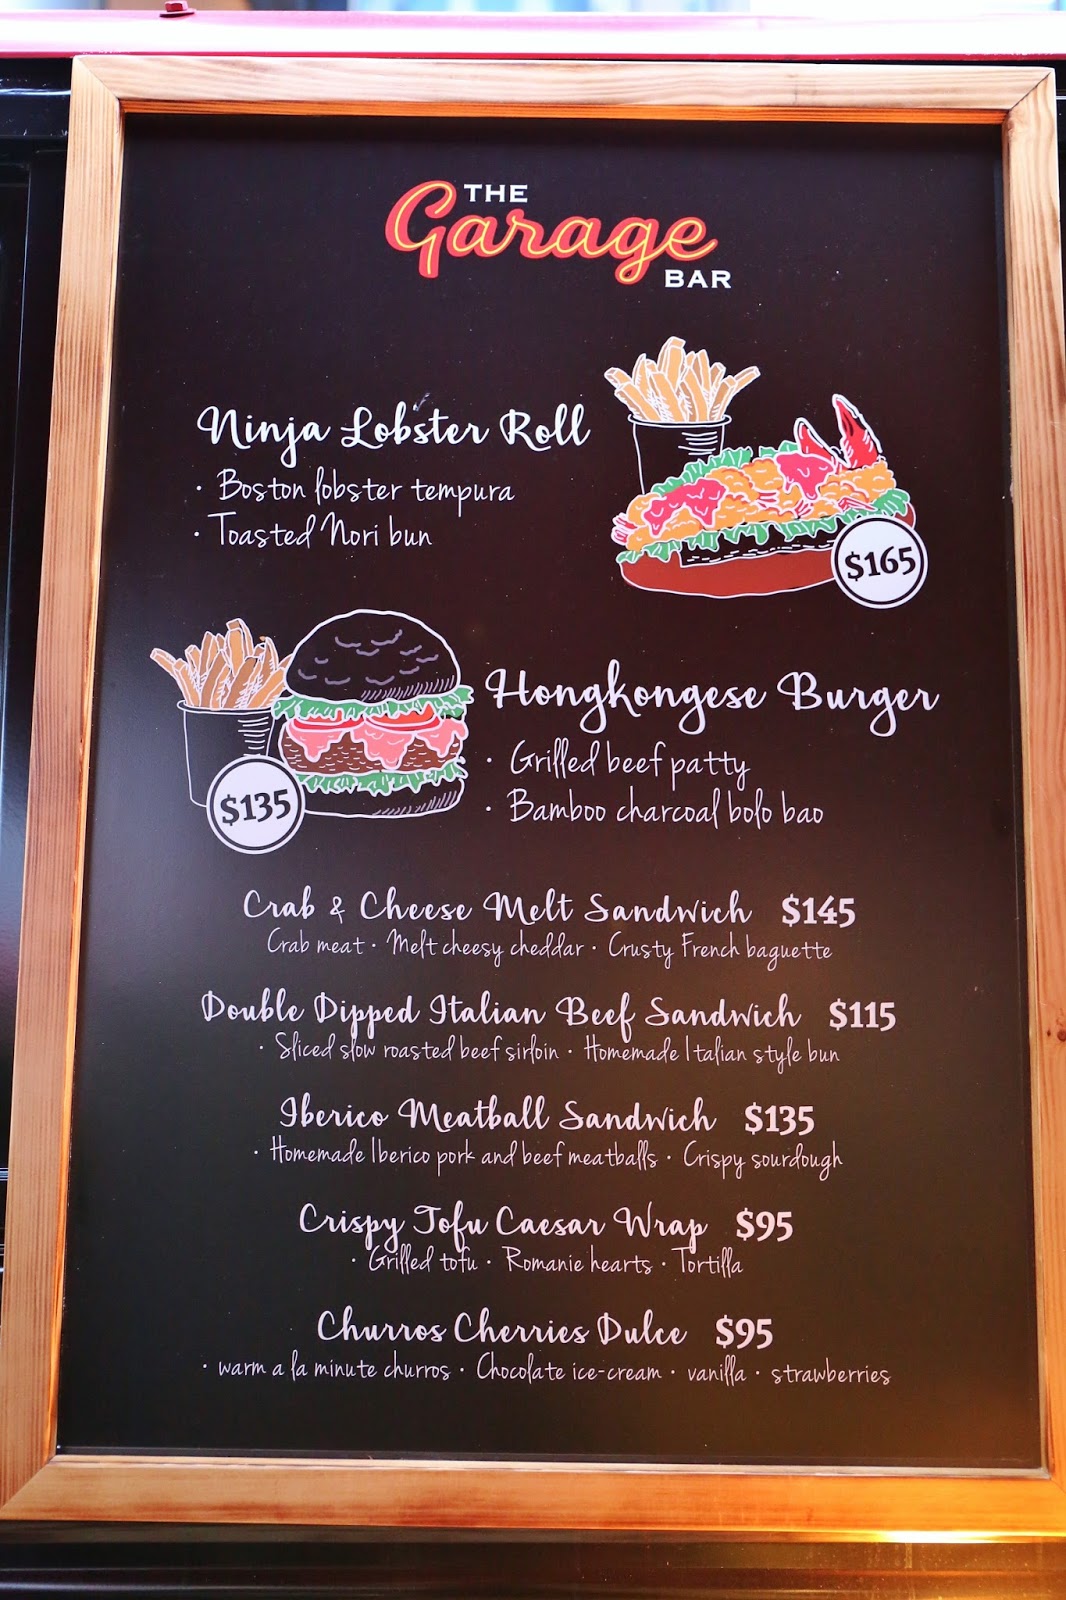 THE
Garage
BAR
Ninja Lobster Roll
· Boston lobster tempura
· Toasted Nori bun
$165
Hongkongese Burger
· Grilled beef patty
· Bamboo charcoal bolo bao
$135
Crab & Cheese Melt Sandwich $145
Crab meat · Melt cheesy cheddar · Crusty French baguette
Double Dipped Italian Beef Sandwich $115
· Sliced slow roasted beef sirloin · Homemade Italian style bun
Iberico Meatball Sandwich $135
· Homemade Iberico pork and beef meatballs · Crispy sourdough
Crispy Tofu Caesar Wrap $95
· Grilled tofu · Romanie hearts · Tortilla
Churros Cherries Dulce $95
· warm a la minute churros · Chocolate ice-cream · vanilla · strawberries